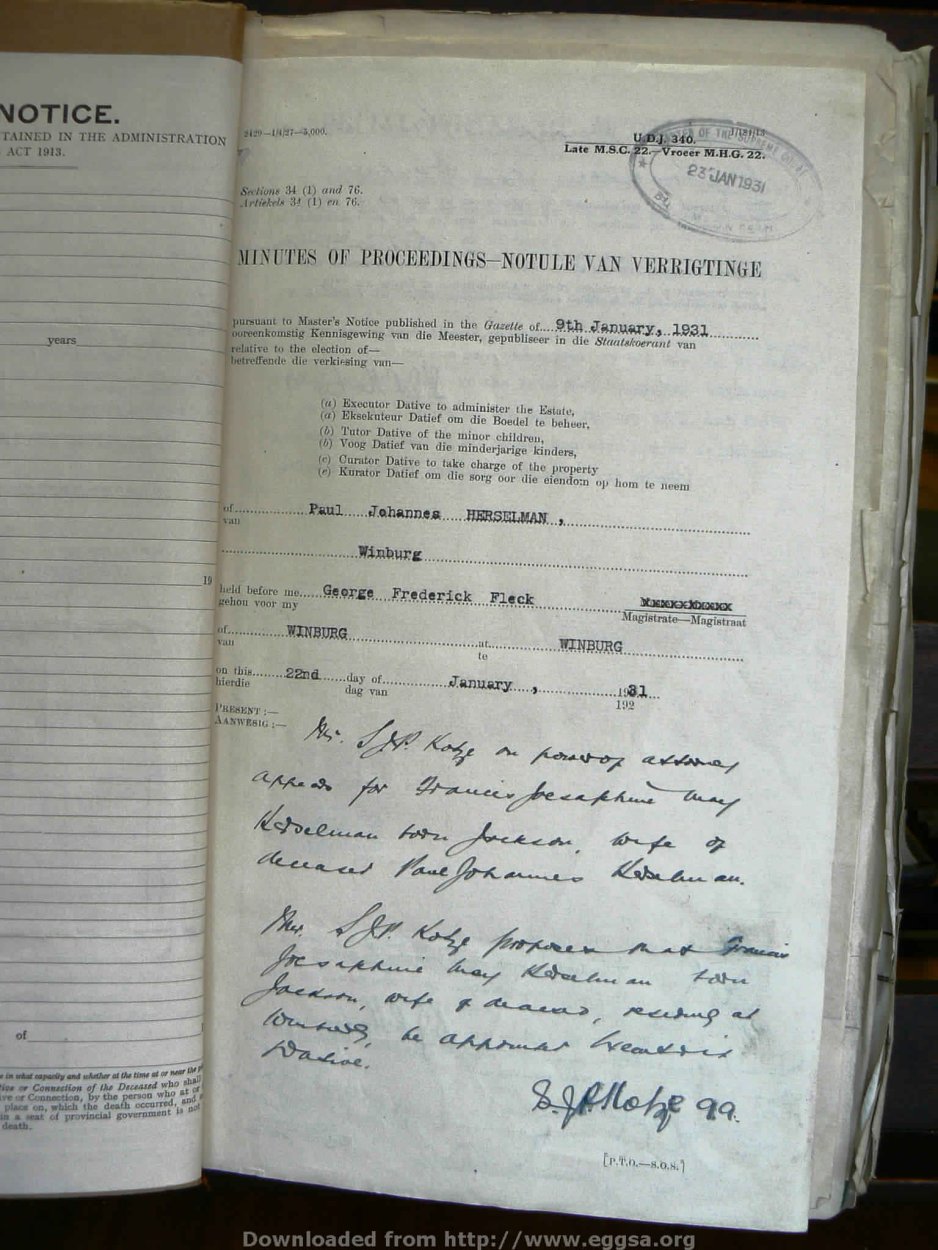 NOTICE.
TAINED IN THE ADMINISTRATION
ACT 1913.
years
19
of
e in what capacity and whether at the time at or near the p
tion or Connection of the Deceased who shall
ve or Connection, by the person who at or
place on, which the death occurred, and
in a seat of provincial government is not
death.
2429—1/4/27—5,000.
U.D.J. 340.
Late M.S.C. 22.—Vroeër M.H.G. 22.
MASTER OF THE SUPREME COURT
23 JAN 1931
Sections 34 (1) and 76.
Artiekels 34 (1) en 76.
MINUTES OF PROCEEDINGS—NOTULE VAN VERRIGTINGE
pursuant to Master's Notice published in the Gazette of 9th January, 1931
ooreenkomstig Kennisgewing van die Meester, gepubliseer in die Staatskoerant van
relative to the election of—
betreffende die verkiesing van—
(a) Executor Dative to administer the Estate,
(a) Eksekuteur Datief om die Boedel te beheer,
(b) Tutor Dative of the minor children,
(b) Voog Datief van die minderjarige kinders,
(c) Curator Dative to take charge of the property
(c) Kurator Datief om die sorg oor die eiendom op hom te neem
of Paul Johannes HERSELMAN,
van
Winburg
held before me George Frederick Fleck
gehou voor my
Magistrate—Magistraat
of WINBURG at WINBURG
van te
on this 22nd day of January, 1931
hierdie dag van 192
PRESENT:—
AANWESIG:—
Mr. S.J.P. Kotze on power of attorney
appears for Francis Joesaphine May
Herselman born Jackson, wife of
deceased Paul Johannes Herselman.
Mr. S.J.P. Kotze proposes that Francis
Joesaphine May Herselman born
Jackson, wife of deceased, residing at
Winburg, be appointed Executrix
Dative.
S.J.P. Kotze q.q.
[P.T.O.—S.O.S.]
Downloaded from http://www.eggsa.org